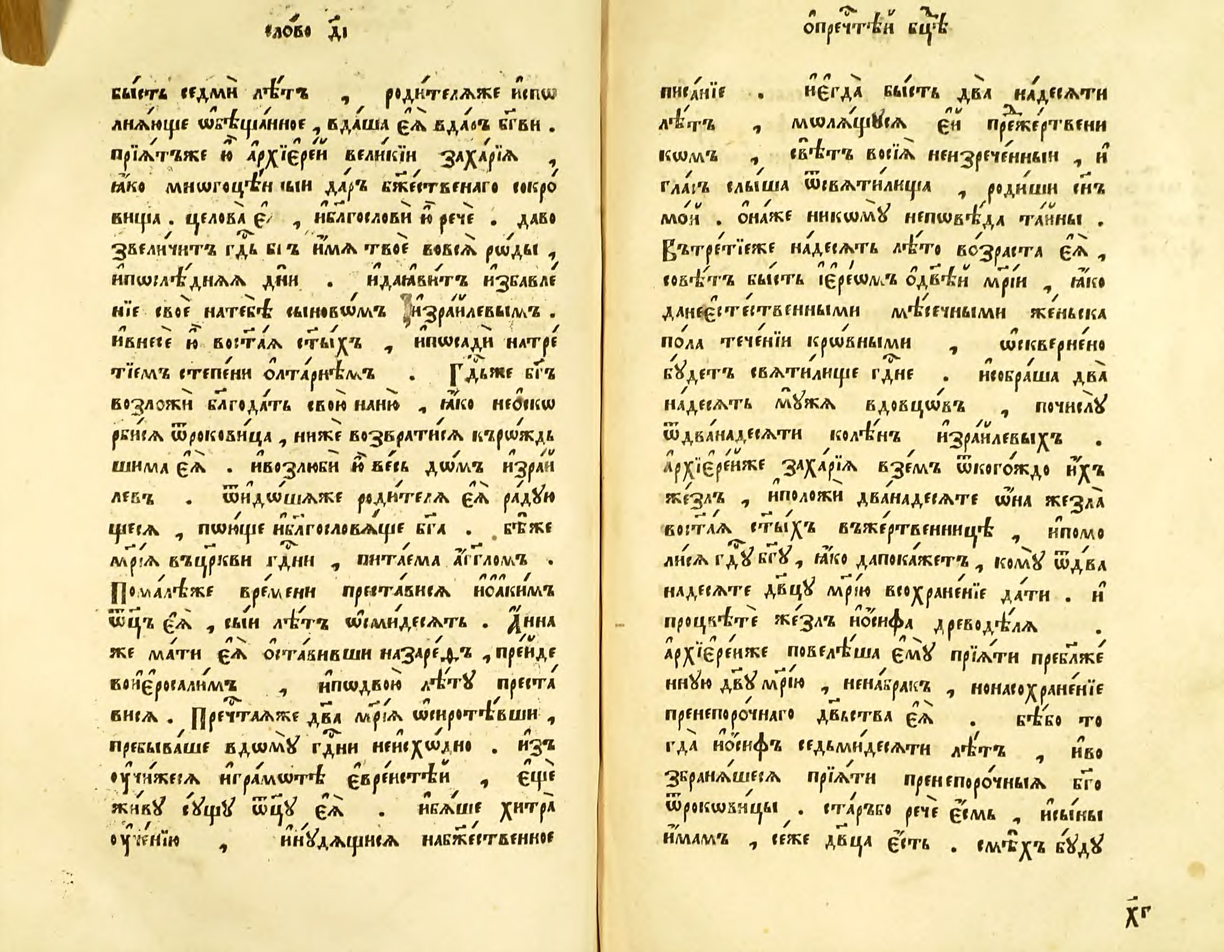 сло́во д҃і
бы́сть седмѝ лѣ́тъ , роди́телѧже и҆спѡ
лнѧ́юще ѡ҆бѣща́нное , вда́ша є҆ѧ̀ вда́ръ бг҃ви .
прїѧ́тъже ю҆̀ а҆рхїєре́й вели́кїи заха́рїѧ ,
ꙗ҆́ко мнѡгоцѣ́нныи да́ръ бж҃е́ственаго сокро́
вища . целова̀ є҆ѧ̀ , и҆благословѝ ю҆̀ речѐ . даво
звели́читъ гд҇ь бг҃ъ и҆́мѧ твоѐ вовсѧ̀ рѡ́ды ,
и҆пѡслѣ́днѧѧ днѝ . и҆даꙗ҆ви́тъ и҆збавле́
нїе своѐ натебѣ̀ сыновѡ́мъ и҆зра́илевымъ .
и҆внесѐ ю҆̀ во ст҃а́ѧ ст҃ы́хъ , и҆пѡсадѝ натре́
тїемъ степе́ни ѻ҆лта́рнѣмъ . Гд҇ьже бг҃ъ
возложѝ блг҃ода́ть свою̀ наню̀ , ꙗ҆́ко неѡскѡ
рби́сѧ ѿрокови́ца , ниже возврати́сѧ къро́ждь
шима є҆ѧ̀ . и҆возлюбѝ ю҆̀ ве́сь до́мъ и҆зра́и
левъ . ѿидо́шаже роди́телѧ є҆ѧ̀ ра́дую
щесѧ , пѡю́ще и҆благословѧ́ще бг҃а . бѣ́же
мр҃і́ѧ въцр҃кви гд҇ни , пита́ема а҆́гг҃ломъ .
Пома́лѣже вре́мени преста́висѧ и҆ѡаки́мъ
ѿц҃ъ є҆ѧ̀ , сы́и лѣ́тъ ѡ҆смидесѧ́тъ . А҆́нна
же ма́ти є҆ѧ̀ ѻ҆ста́вивши назаре́ѳъ , прїи́де
воїєросали́мъ , и҆пѡдвою̀ лѣ́тꙋ преста́
висѧ . Пречⷭ҇таѧже дв҃а мр҃і́ѧ ѡ҆сироте́вши ,
пребыва́ше вдомꙋ̀ гд҇ни неи҆схо́дно . и҆зъ
ᲂу҆чи́жесѧ и҆гра́мотѣ є҆вре́истѣй , є҆щѐ
жи́вꙋ сꙋ́щꙋ ѿц҃ꙋ є҆ѧ̀ . и҆бѧ́ше хитра̀
ᲂу҆че́нїю , и҆нꙋдѧ́щисѧ набж҃е́ственное
ѡ҆преч҇тѣ́й бц҃ѣ
писа́нїе . и҆є҆гда̀ бы́сть два̀ на́десѧти
лѣ́тъ , мѡлѧ́щꙋсѧ є҆́й преⷣже́ртвени
комъ , свѣ́тъ восїѧ̀ неизрече́нныи , и҆
гла́съ слы́ша ѿсвѧти́лища , роди́ши сн҃ъ
мо́й . ѻ҆на́же нико́мꙋ непѡвѣ́да та́йны .
Вътре́тїеже на́десѧть лѣ́то во́зраста є҆ѧ̀ ,
совѣ́тъ бы́сть і҆єре́ѡмъ ѻ҆двѣ҃й мр҃і́и , ꙗ҆́ко
данеє҆сте́ственными мѣ́сечными же́ньска
по́ла тече́нїи крѡ́вными , ѡ҆скверне́но
бꙋ́детъ свѧти́лище гд҇не . и҆собра́ша два̀
на́десѧть мꙋ́жѧ вдовцѡ́въ , почислꙋ̀
ѿдвана́десѧти колѣ́нъ и҆зра́илевыхъ .
а҆рхїєре́йже заха́рїѧ взе́мъ ѿкого́ждо и҆́хъ
же́злъ , и҆положѝ двана́десѧте ѻ҆́на жезла̀
во ст҃а́ѧ ст҃ы́хъ въже́ртвенницѣ , и҆помо
ли́сѧ гд҇ꙋ бг҃ꙋ , ꙗ҆́ко дапока́жетъ , комꙋ̀ ѿдва
на́десѧте дв҃цꙋ мр҃і́ю всохране́нїе да́ти . и҆
процвѣтѐ же́злъ и҆ѡ́сифа древодѣ́лѧ .
а҆рхїєре́иже повелѣ́ша є҆мꙋ̀ прїѧ́ти пребл҃же́
ннꙋю дв҃ꙋ мр҃і́ю , нена́бракъ , нонасохране́нїе
пренепоро́чнаго дв҃ьства є҆ѧ̀ . бѣ́бо то
гда̀ и҆ѡ́сифъ седьми́десѧти лѣ́тъ , и҆во
збранѧ́шесѧ прїѧ́ти пренепоро́чныѧ бг҃о
ѿрокови́цы . ста́ръбо речѐ є҆́смь , и҆сы́ны
и҆́мамъ , се́же дв҃ца є҆́сть . смѣ́хъ бꙋ́дꙋ
х҃г